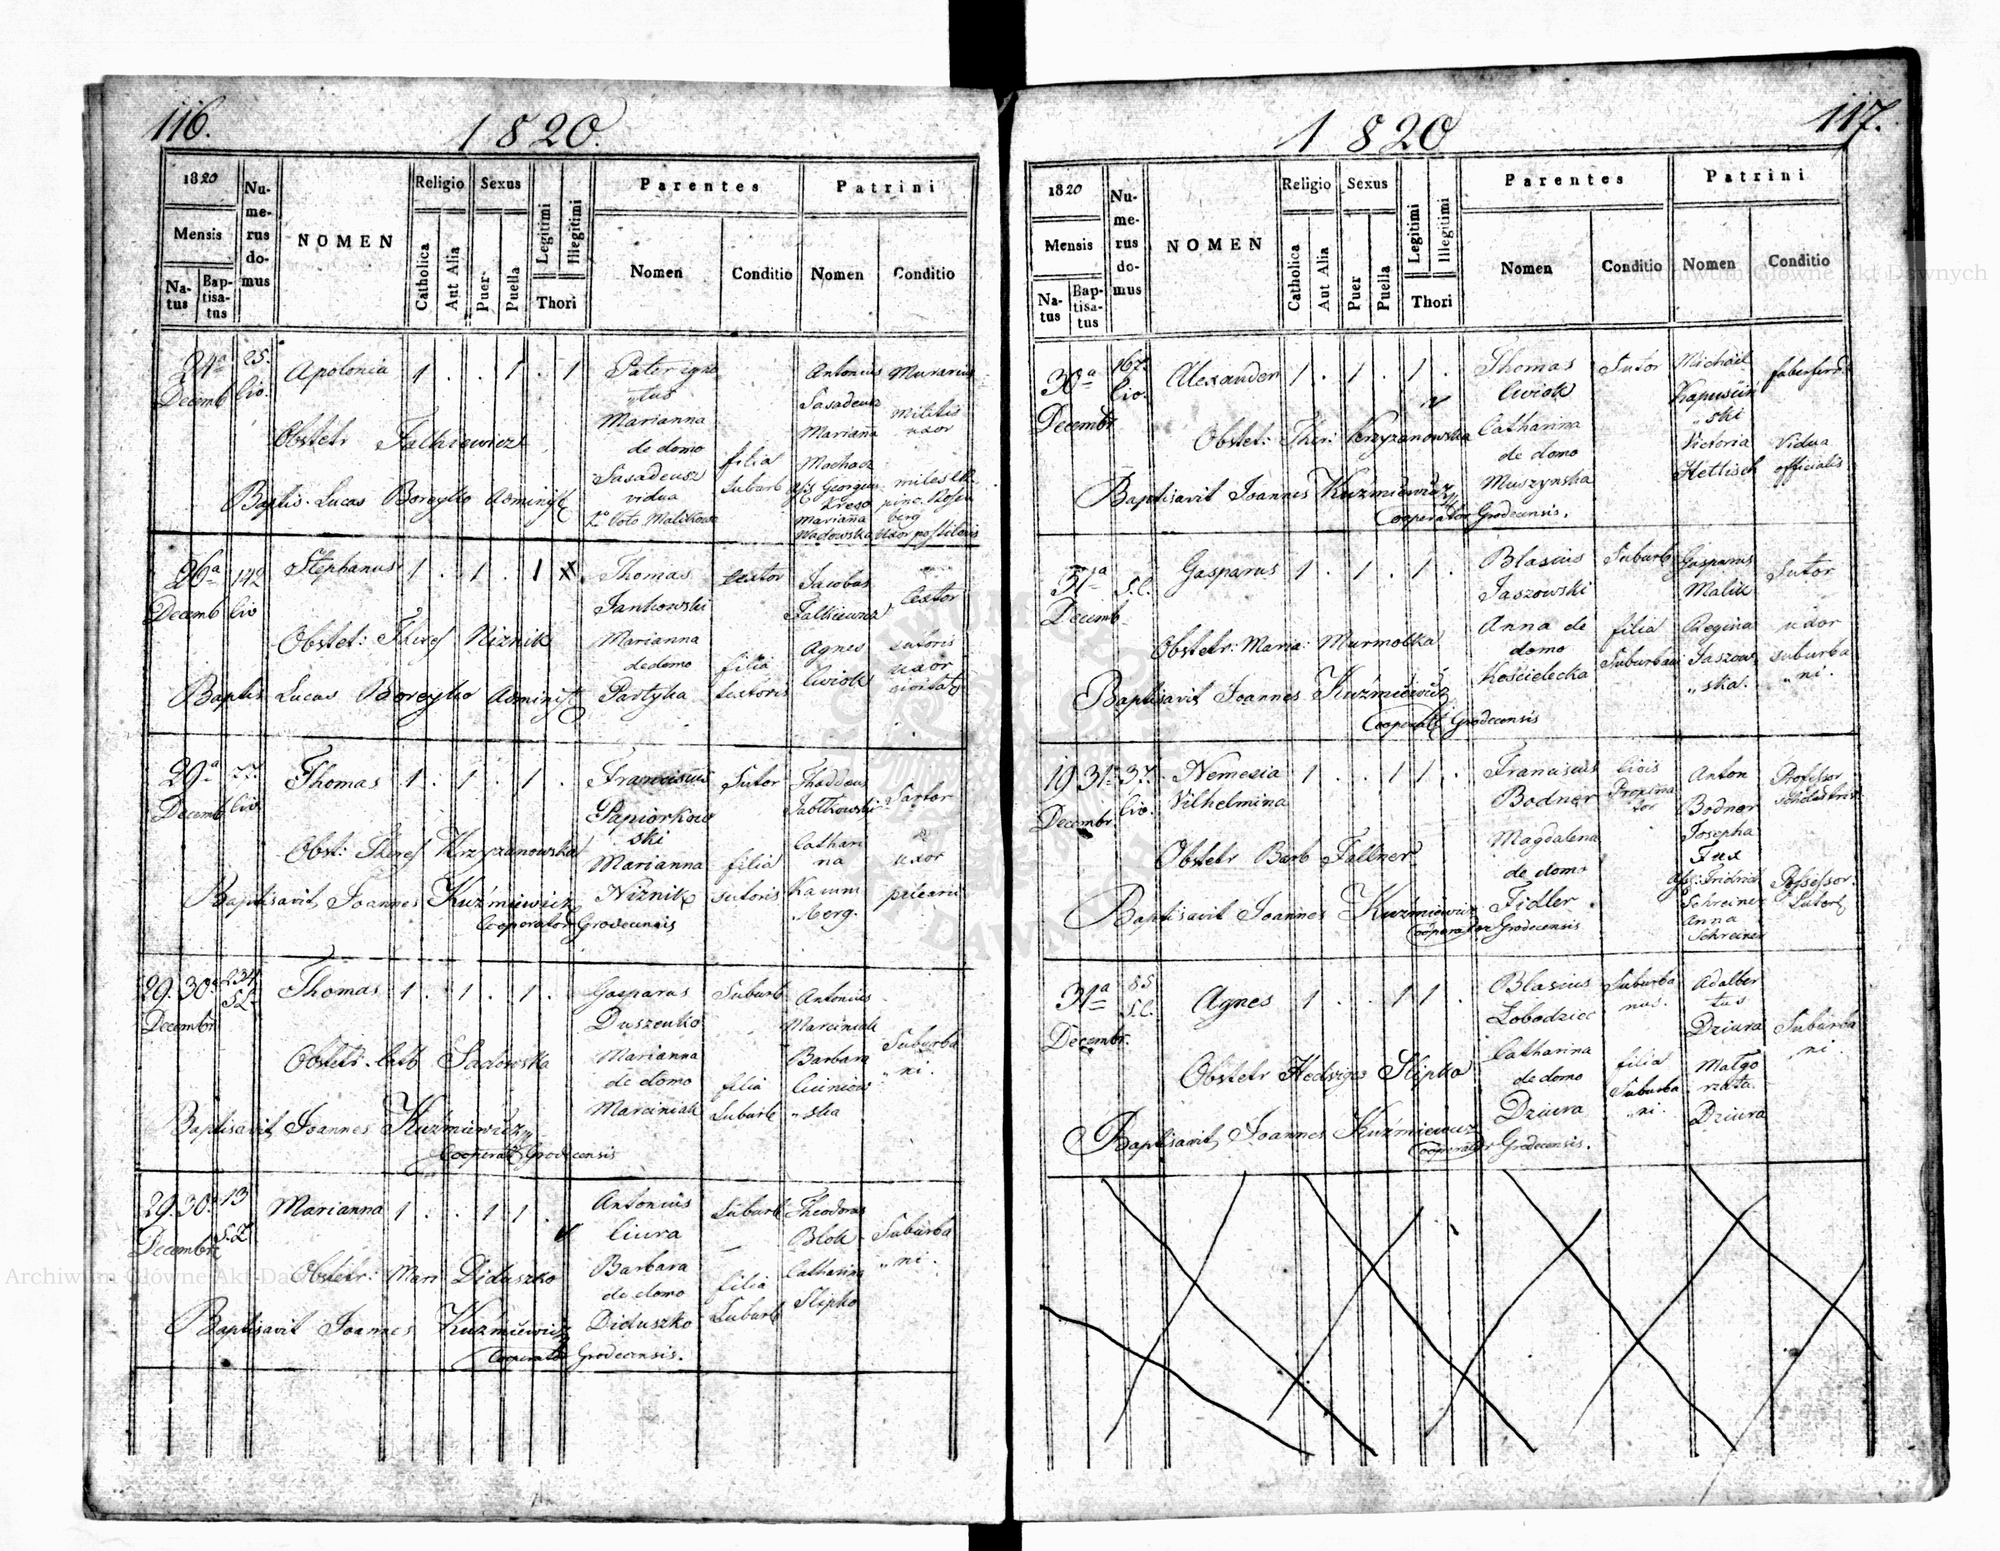 116.
1820.
1820
Mensis
Na-
tus
Bap-
tisa-
tus
Nu-
me-
rus
do-
mus
NOMEN
Religio
Catholica
Aut Alia
Sexus
Puer
Puella
Legitimi
Illegitimi
Thori
Parentes
Nomen
Conditio
Patrini
Nomen
Conditio
24a
Decemb
25.
Civ.
Apolonia
1 . . 1 . 1
Pater igno
"tus
Marianna
de domo
Sasadeusz
vidua
filia
Suburb
Antonius
Marianna
Murarius
militis
uxor
Obstetr Falkiewicz
Baptis. Lucas Boreyko Administ
26a
Decemb
142
Civ
Stephanus
1 . 1 . 1 X
Thomas
Jankowski
Marianna
de domo
Partyka
textor
filia
sutoris
Jacobus
Falkiewicz
Agnes
Cwiok
textor
sutoris
uxor
Obstet: Theres Niznik
Baptis Lucas Boreyko Administ
29a
Decemb
77.
Civ
Thomas
1 . 1 . 1 .
Franciscus
Papiorkow
ski
Marianna
Niznik
Sutor
filia
sutoris
Thaddeus
Jabłkowski
Cathari
na
Kamm
berg.
Sartor
uxor
Obst: Theres Krzyzanowska
Baptisavit Joannes Kuźmiewicz
Cooperator Grodecensis
29. 30a
Decembr
234
S.L.
Thomas
1 . 1 . 1 .
Gasparus
Duszenko
Marianna
de domo
Marciniak
Suburb
filia
Suburb
Antonius
Marciniak
Barbara
"ska
Suburba
"ni.
Obstetr. Cath Sadowska
Baptisavit Joannes Kuźmiewicz
Cooperat Grodecensis
29. 30a
Decembr
13
S.L.
Marianna
1 . . 1 1 .
Antonius
Ciura
Barbara
de domo
Diduszko
Suburb
filia
Suburb
Theodorus
Blok
Catharina
Slipko
Suburba
"ni.
Obstetr: Mari Diduszko
Baptisavit Joannes Kuźmiewicz
Cooperator Grodecensis.
117.
1820
1820
Mensis
Na-
tus
Bap-
tisa-
tus
Nu-
me-
rus
do-
mus
NOMEN
Religio
Catholica
Aut Alia
Sexus
Puer
Puella
Legitimi
Illegitimi
Thori
Parentes
Nomen
Conditio
Patrini
Nomen
Conditio
30a
Decembr
167.
Civ.
Alexander
1 . 1 . 1 .
Thomas
Cwiok
Catharina
de domo
Muszynska
Sutor
Michael
Kapuscin
"ski
Victoria
Hettisch
faberferr
Vidua
officialis
Obstet: Ther: Krzyzanowska
Baptisavit Joannes Kuźmiewicz
Cooperator Grodecensis.
31a
Decemb
S.L.
Gasparus
1 . 1 . 1 .
Blasius
Jaszowski
Anna de
domo
Kościelecka
Suburb
filia
Suburbani
Gasparus
Malik
Regina
Jaszow
"ska.
Sutor
uxor
suburba
"ni.
Obstetr: Maria: Murmolka
Baptisavit Joannes Kuźmiewicz
Cooperat Grodecensis
19 31a
Decembr.
37.
Civ.
Nemezia
Vilhelmina
1 . . 1 1 .
Franciscus
Bodner
Magdalena
de domo
Fidler
Civis
Propina
tor
Anton
Bodner
Josepha
Fux
Schreiner
Anna
Schreiner
Professor
Obstetr Barb Fallner
Baptisavit Joannes Kuźmiewicz
Cooperator Grodecensis
31a
Decembr.
85
S.L.
Agnes
1 . . 1 1 .
Blasius
Lobodziec
Catharina
de domo
Dziura
Suburba
nus.
filia
Suburba
"ni.
Adalber
tus
Dziura
Małgo
rzata
Dziura
Suburba
"ni.
Obstetr Hedviges Slipko
Baptisavit Joannes Kuźmiewicz
Cooperator Grodecensis.
Archiwum Główne Akt Dawnych
Archiwum Główne Akt Dawnych